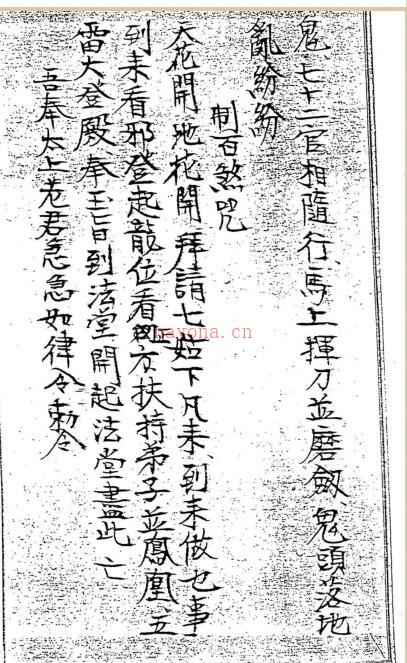 鬼、七十二官相隨行、馬上揮刀並磨劔、鬼頭落地
亂紛紛
制百煞咒
天花開地花開拜請七姑下凡來、到來做乜事
到來看邪登起龍位看四方扶持弟子並鳳凰五
雷大登殿奉玉旨到法堂開起法堂盡此亡
吾奉太上老君急急如律令勅令
nayona.cn